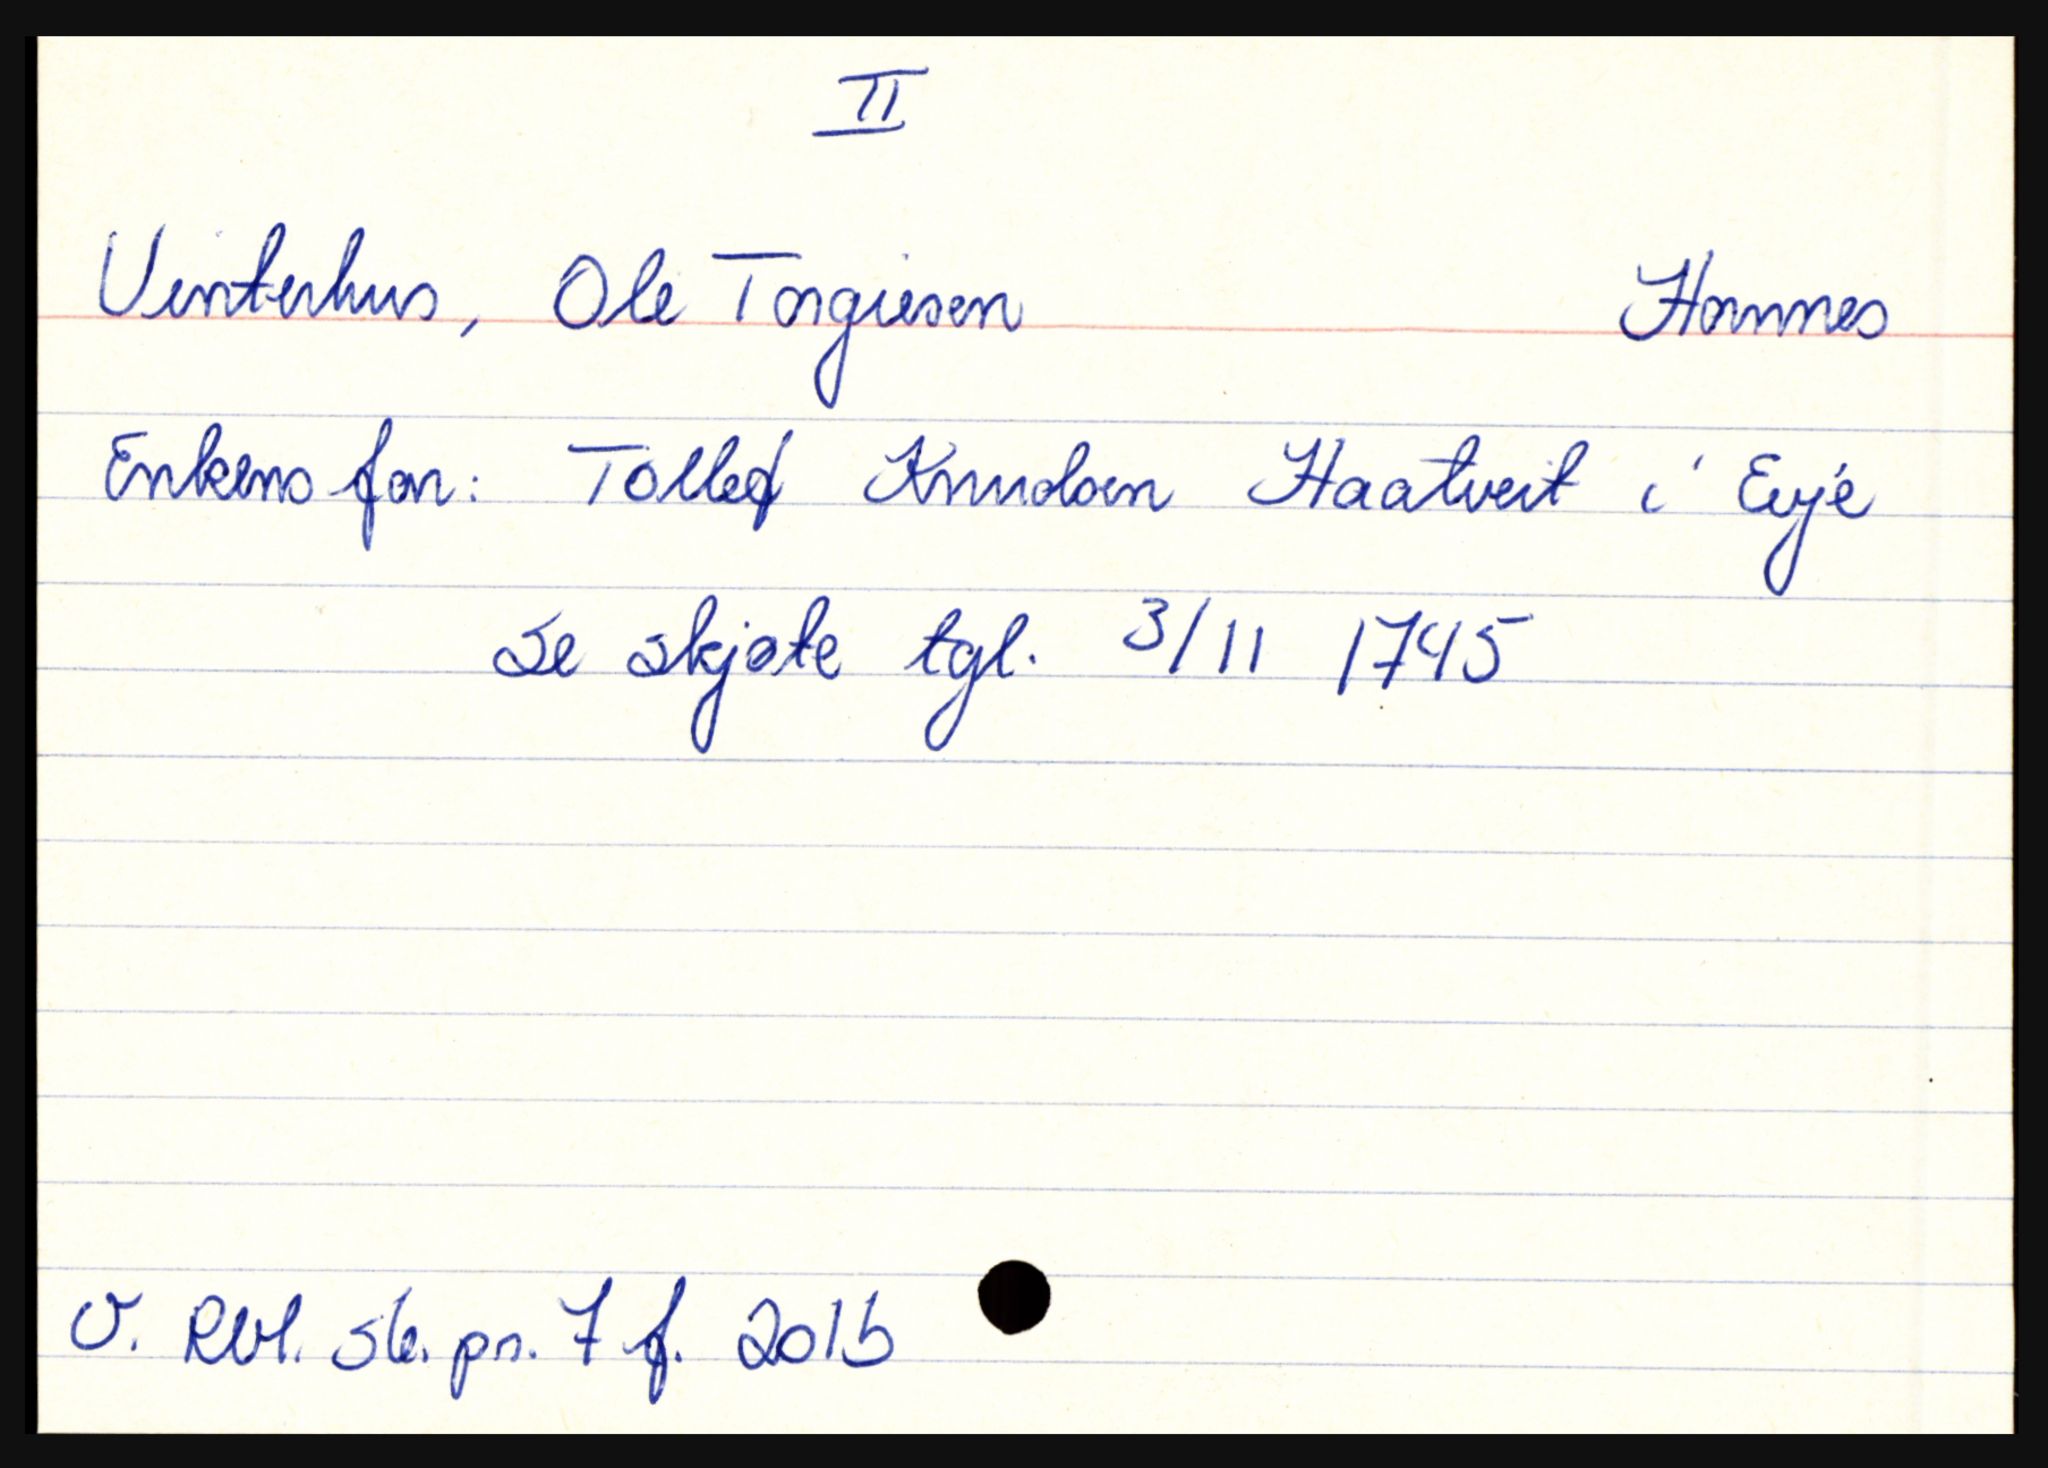 II
Vinterhus, Ole Torgiesen Hornnes
Enkens far: Tollef Knudsen Haatveit i Evje
Se skjøte tgl. 3/11 1745
V. Rbl. sk. pr. 7 f. 201b